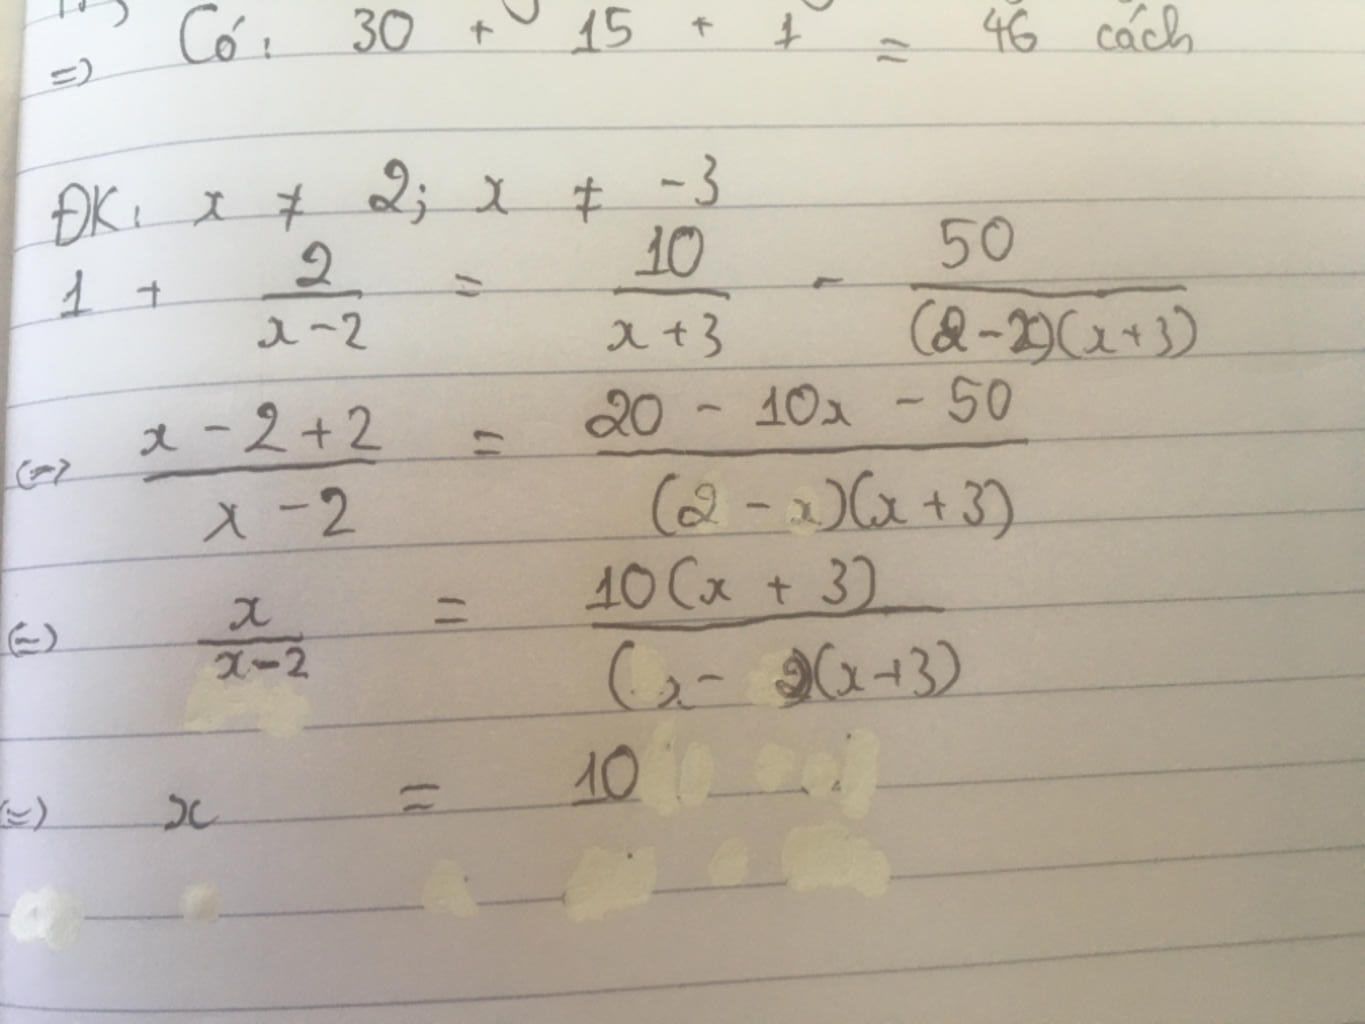 => Có: 30 + 15 + 1 = 46 cách
ĐK: x ≠ 2; x ≠ -3
1 + 2/(x-2) = 10/(x+3) - 50/((2-x)(x+3))
(=) (x-2+2)/(x-2) = (20 - 10x - 50)/((2-x)(x+3))
(=) x/(x-2) = 10(x+3)/((x-2)(x+3))
(=) x = 10